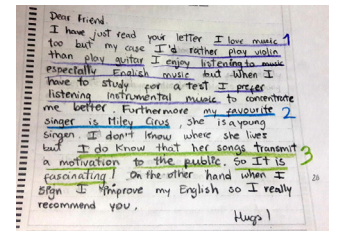 Dear Friend.
I have just read your letter I love music 1
too but my case I'd rather play violin
than play guitar I enjoy listening to music
especially English music but when I
have to study for a test I prefer
listening instrumental music to concentrate
me better. Furthermore my favourite 2
singer is Miley Cirus, she is a young
singer. I don't know where she lives
but I do know that her songs transmit 3
a motivation to the public. So It is
fascinating! On the other hand when I
sign I improve my English so I really
recommend you.
Hugs!
20